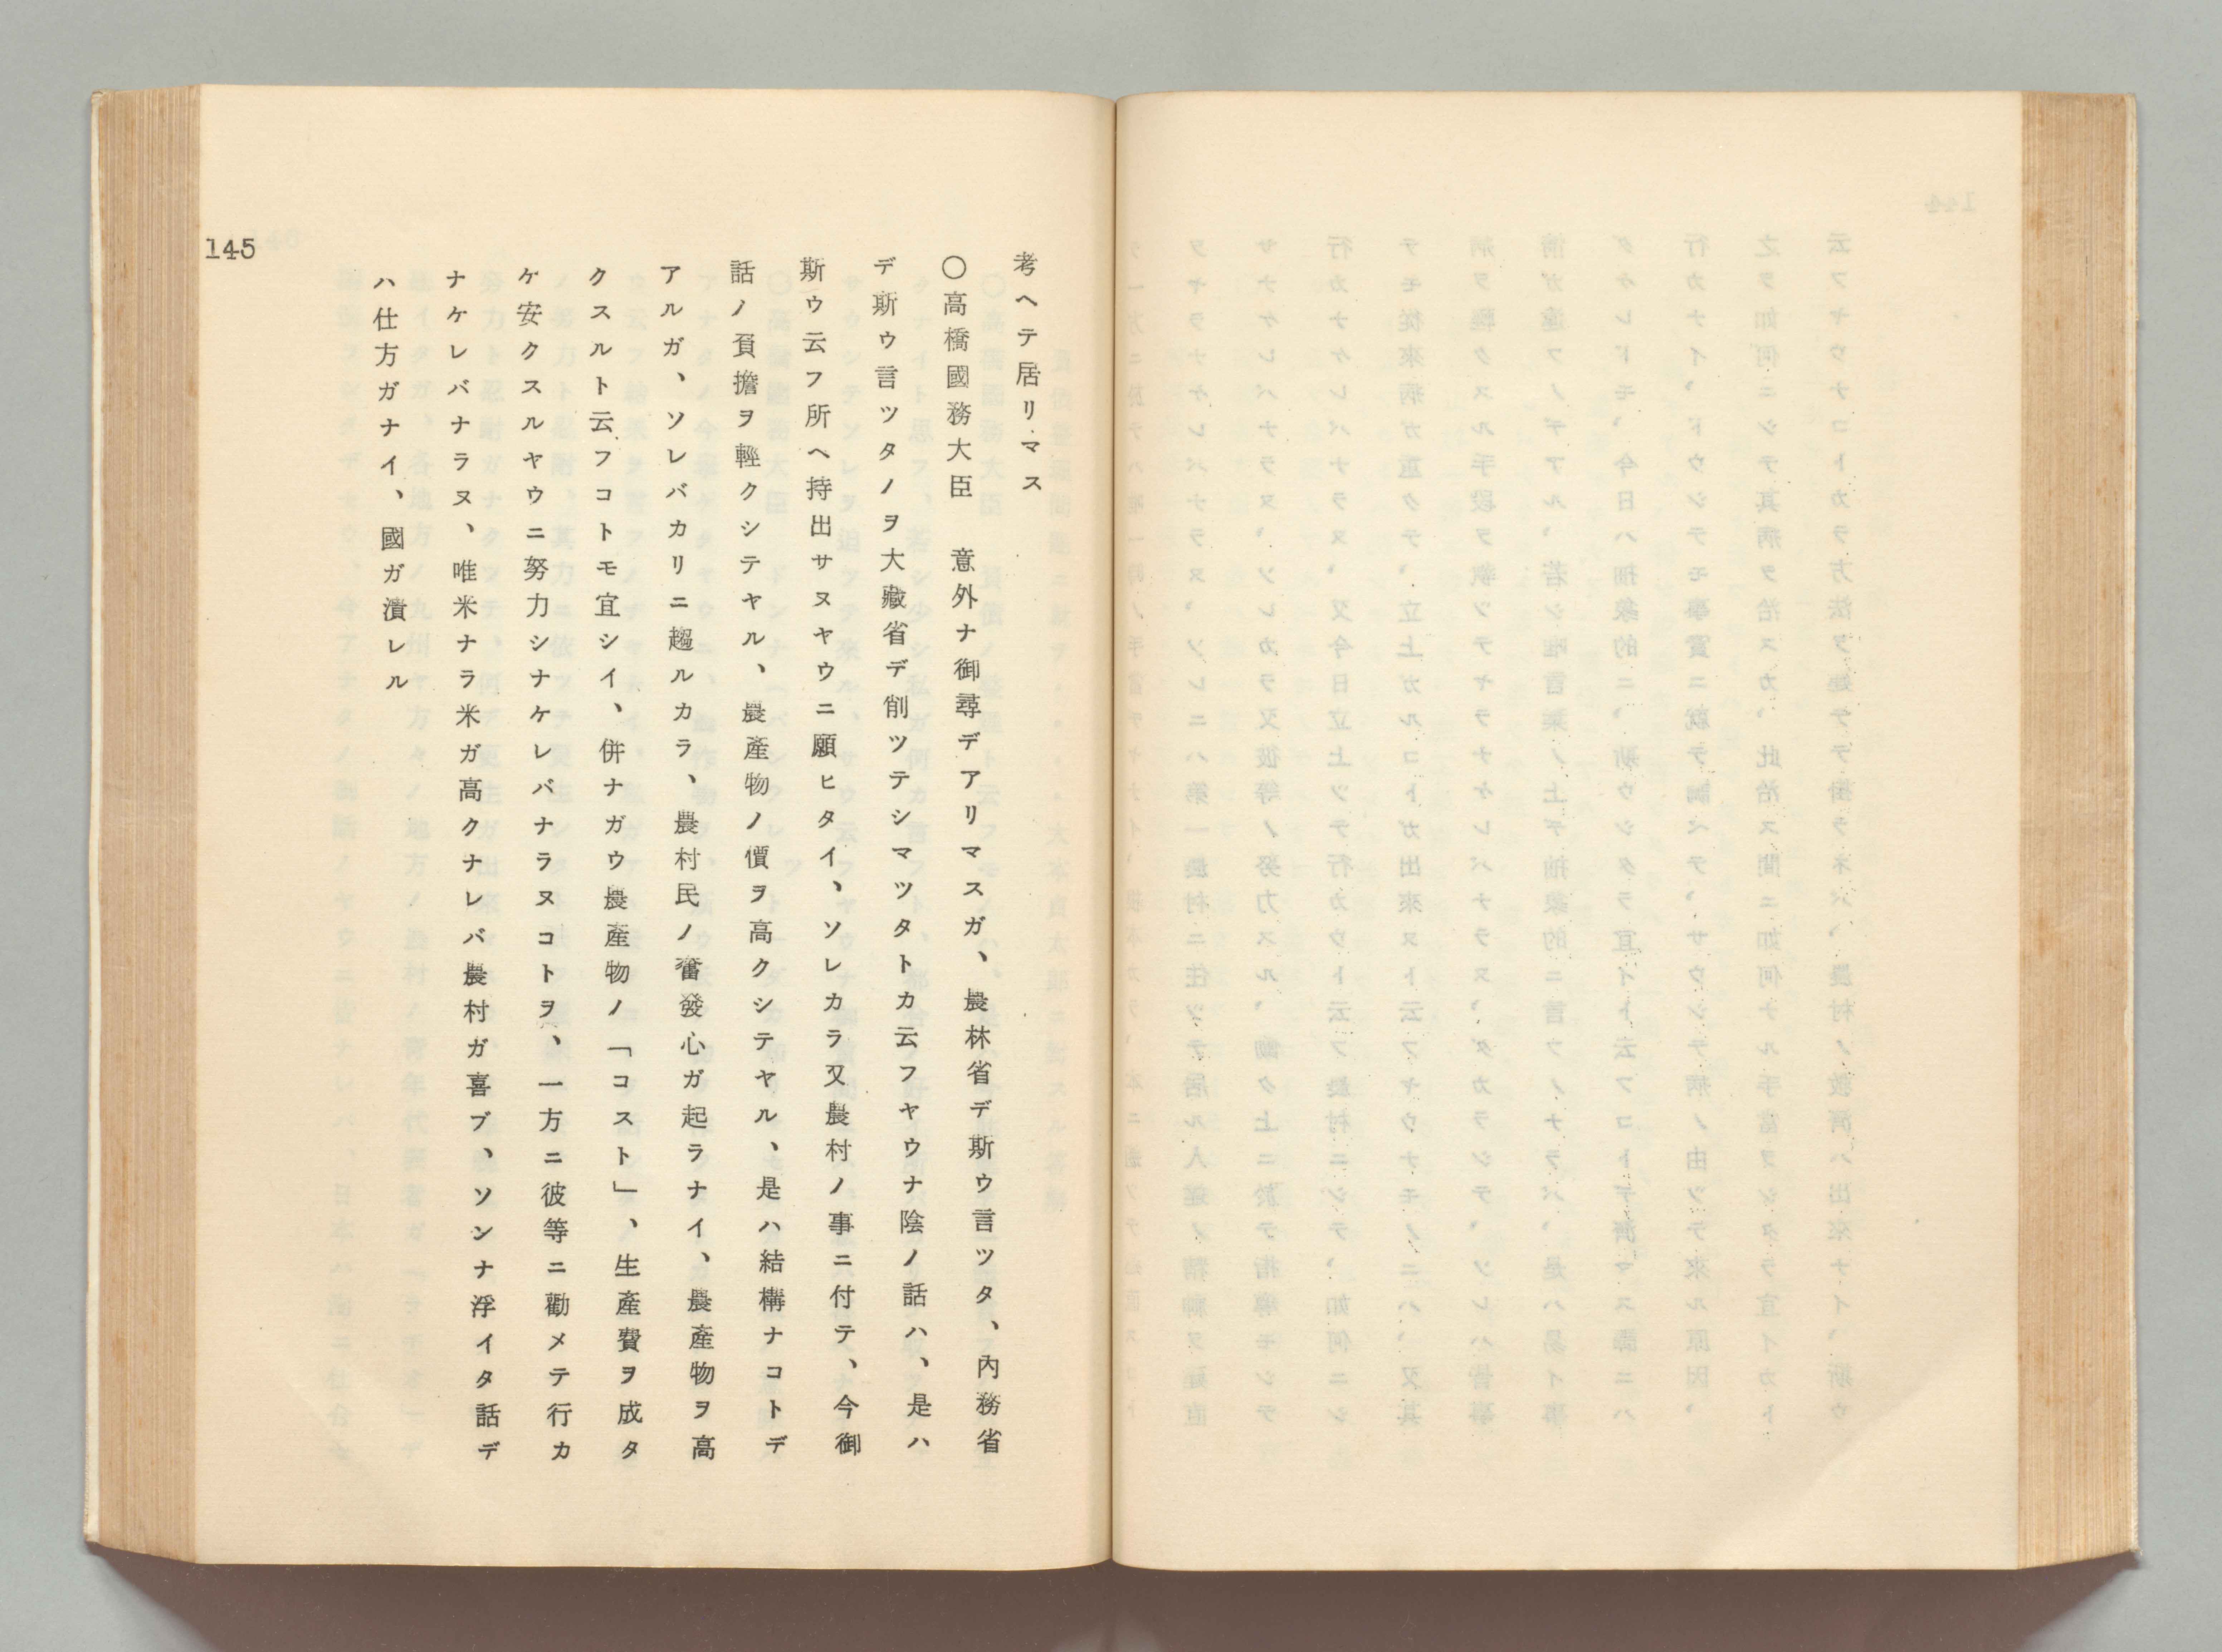 考ヘテ居リマス
〇高橋國務大臣　意外ナ御尋デアリマスガ、農林省デ斯ウ言ツタ、內務省
デ斯ウ言ツタノヲ大藏省デ削ツテシマツタトカ云フヤウナ陰ノ話ハ、是ハ
斯ウ云フ所ヘ持出サヌヤウニ願ヒタイ、ソレカラ又農村ノ事ニ付テ、今御
話ノ負擔ヲ輕クシテヤル、農產物ノ價ヲ高クシテヤル、是ハ結構ナコトデ
アルガ、ソレバカリニ趨ルカラ、農村民ノ奮發心ガ起ラナイ、農產物ヲ高
クスルト云フコトモ宜シイ、併ナガウ農產物ノ「コスト」、生產費ヲ成タ
ケ安クスルヤウニ努力シナケレバナラヌコトヲ、一方ニ彼等ニ勸メテ行カ
ナケレバナラヌ、唯米ナラ米ガ高クナレバ農村ガ喜ブ、ソンナ浮イタ話デ
ハ仕方ガナイ、國ガ潰レル
145